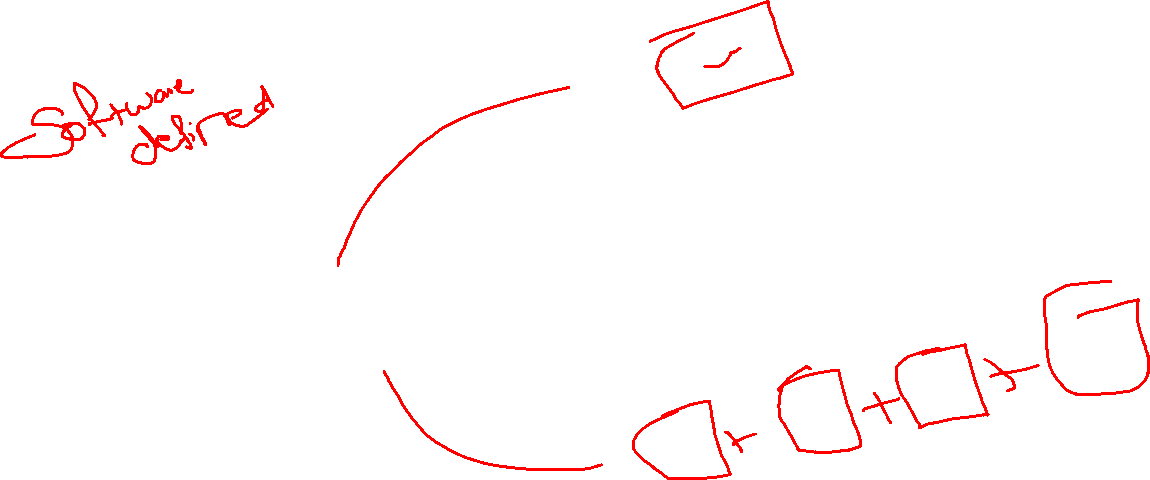 Software
defined
+ + +